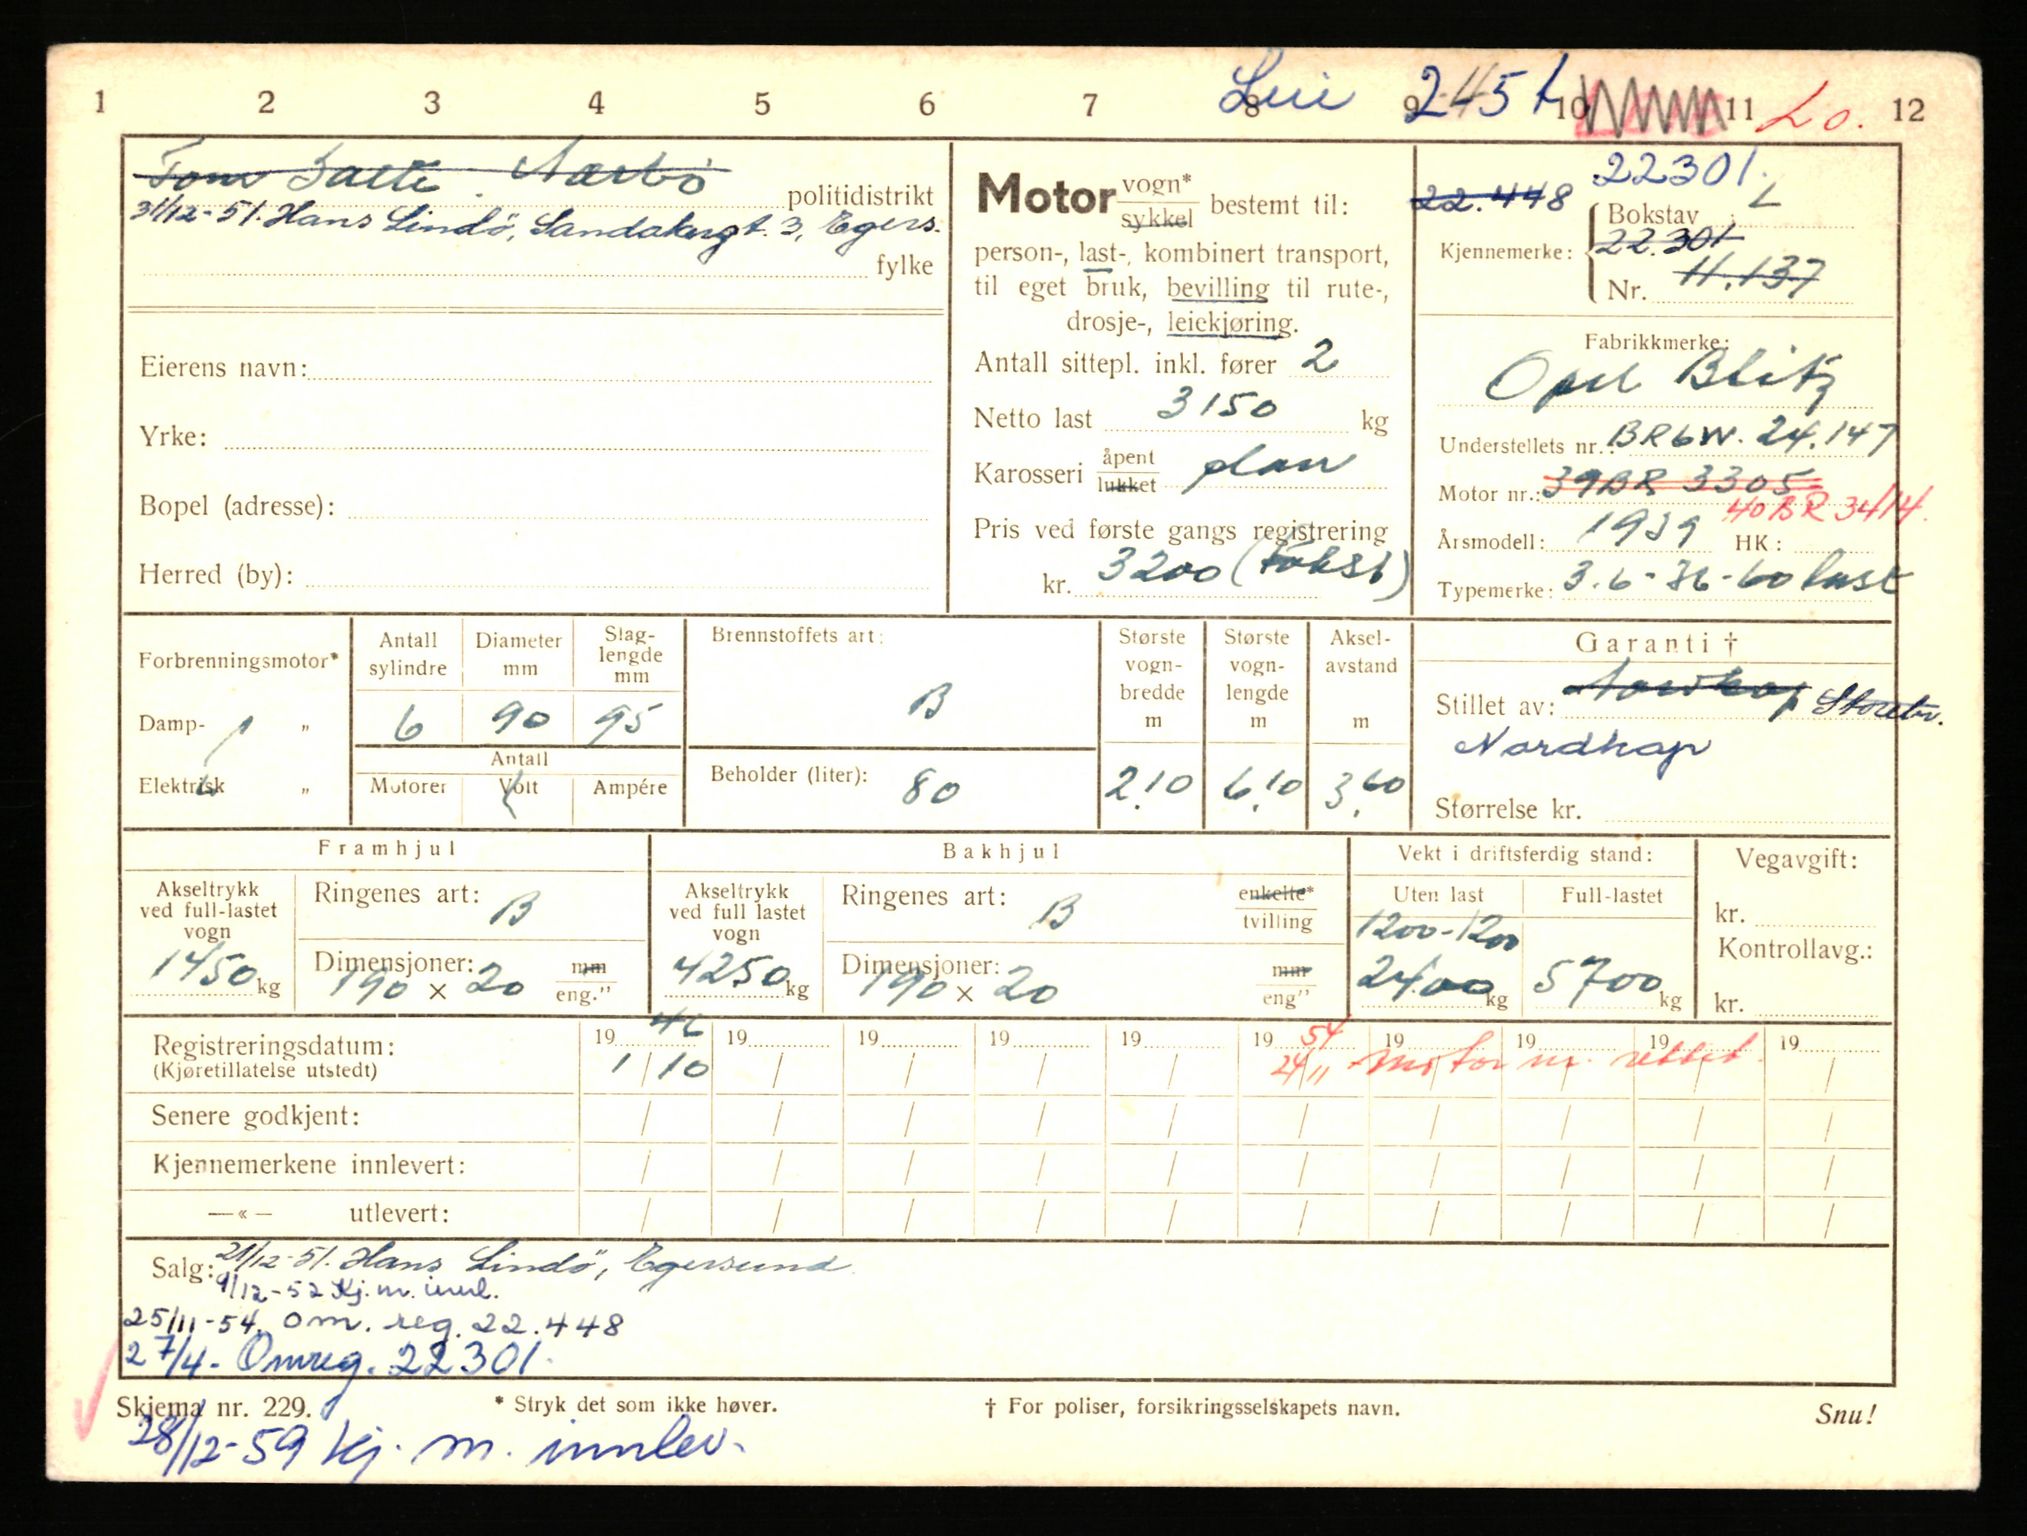 1 2 3 4 5 6 7 8 9 10 11 12
Leie 245 t Lo.
Tom Salte. Nærbø
politidistrikt
31/12-51. Hans Lindö, Sandakergt. 3, Egers.
fylke
Eierens navn:
Yrke:
Bopel (adresse):
Herred (by):
Motor vogn* / sykkel bestemt til:
person-, last-, kombinert transport,
til eget bruk, bevilling til rute-,
drosje-, leiekjøring.
Antall sittepl. inkl. fører 2
Netto last 3150 kg
Karosseri åpent / lukket plan
Pris ved første gangs registrering
kr. 3200 (takst)
22301.
22.448
Kjennemerke: Bokstav L
22.301
Nr. 11.137
Fabrikkmerke:
Opel Blitz
Understellets nr.: BR6W. 24.147
Motor nr.: 39BR 3305
40 BR 3414.
Årsmodell: 1939 HK:
Typemerke: 3.6-36-60 last
Forbrenningsmotor*
Damp- „
Elektrisk „
Antall sylindre 6
Diameter mm 90
Slag-lengde mm 95
Antall
Motorer Volt Ampére
Brennstoffets art:
B
Beholder (liter): 80
Største vogn-bredde m 2.10
Største vogn-lengde m 6.10
Aksel-avstand m 3.60
Garanti †
Stillet av: Nordkap Storebr.
Nordkap
Størrelse kr.
Framhjul
Akseltrykk ved full-lastet vogn
1450 kg
Ringenes art: B
Dimensjoner: mm / eng.”
190 × 20
Bakhjul
Akseltrykk ved full lastet vogn
4250 kg
Ringenes art: B enkelte* / tvilling
Dimensjoner: mm / eng”
190 × 20
Vekt i driftsferdig stand:
Uten last Full-lastet
1200-1200
2400 kg 5700 kg
Vegavgift:
kr.
Kontrollavg.:
kr.
Registreringsdatum: 19 46 19 19 19 19 19 54 19 19 19 19
(Kjøretillatelse utstedt) 1/10 24/11 Motor nr. rettet
Senere godkjent:
Kjennemerkene innlevert:
—«— utlevert:
Salg: 21/12-51. Hans Lindö, Egersund
9/12-52 Kj. m. innl.
25/11-54. Om. reg. 22.448
27/4- Omreg. 22301.
Skjema nr. 229. * Stryk det som ikke høver. † For poliser, forsikringsselskapets navn. Snu!
28/12-59 kj. m. innlev.